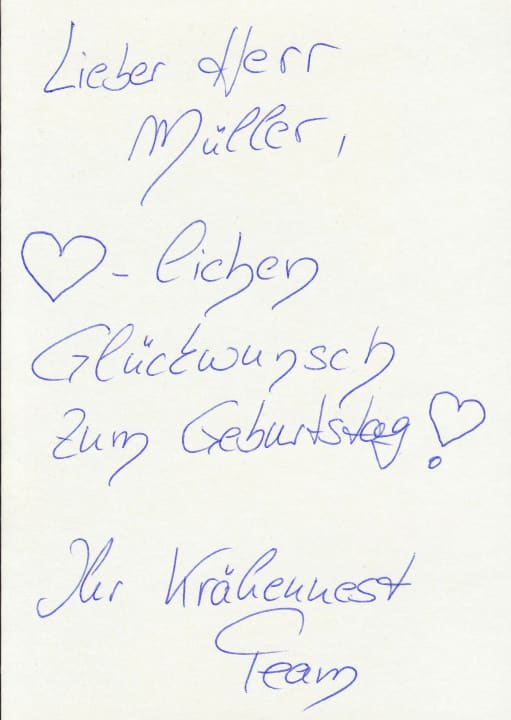 Lieber Herr
Müller,
♡-lichen
Glückwunsch
zum Geburtstag!
Ihr Krähennest
Team